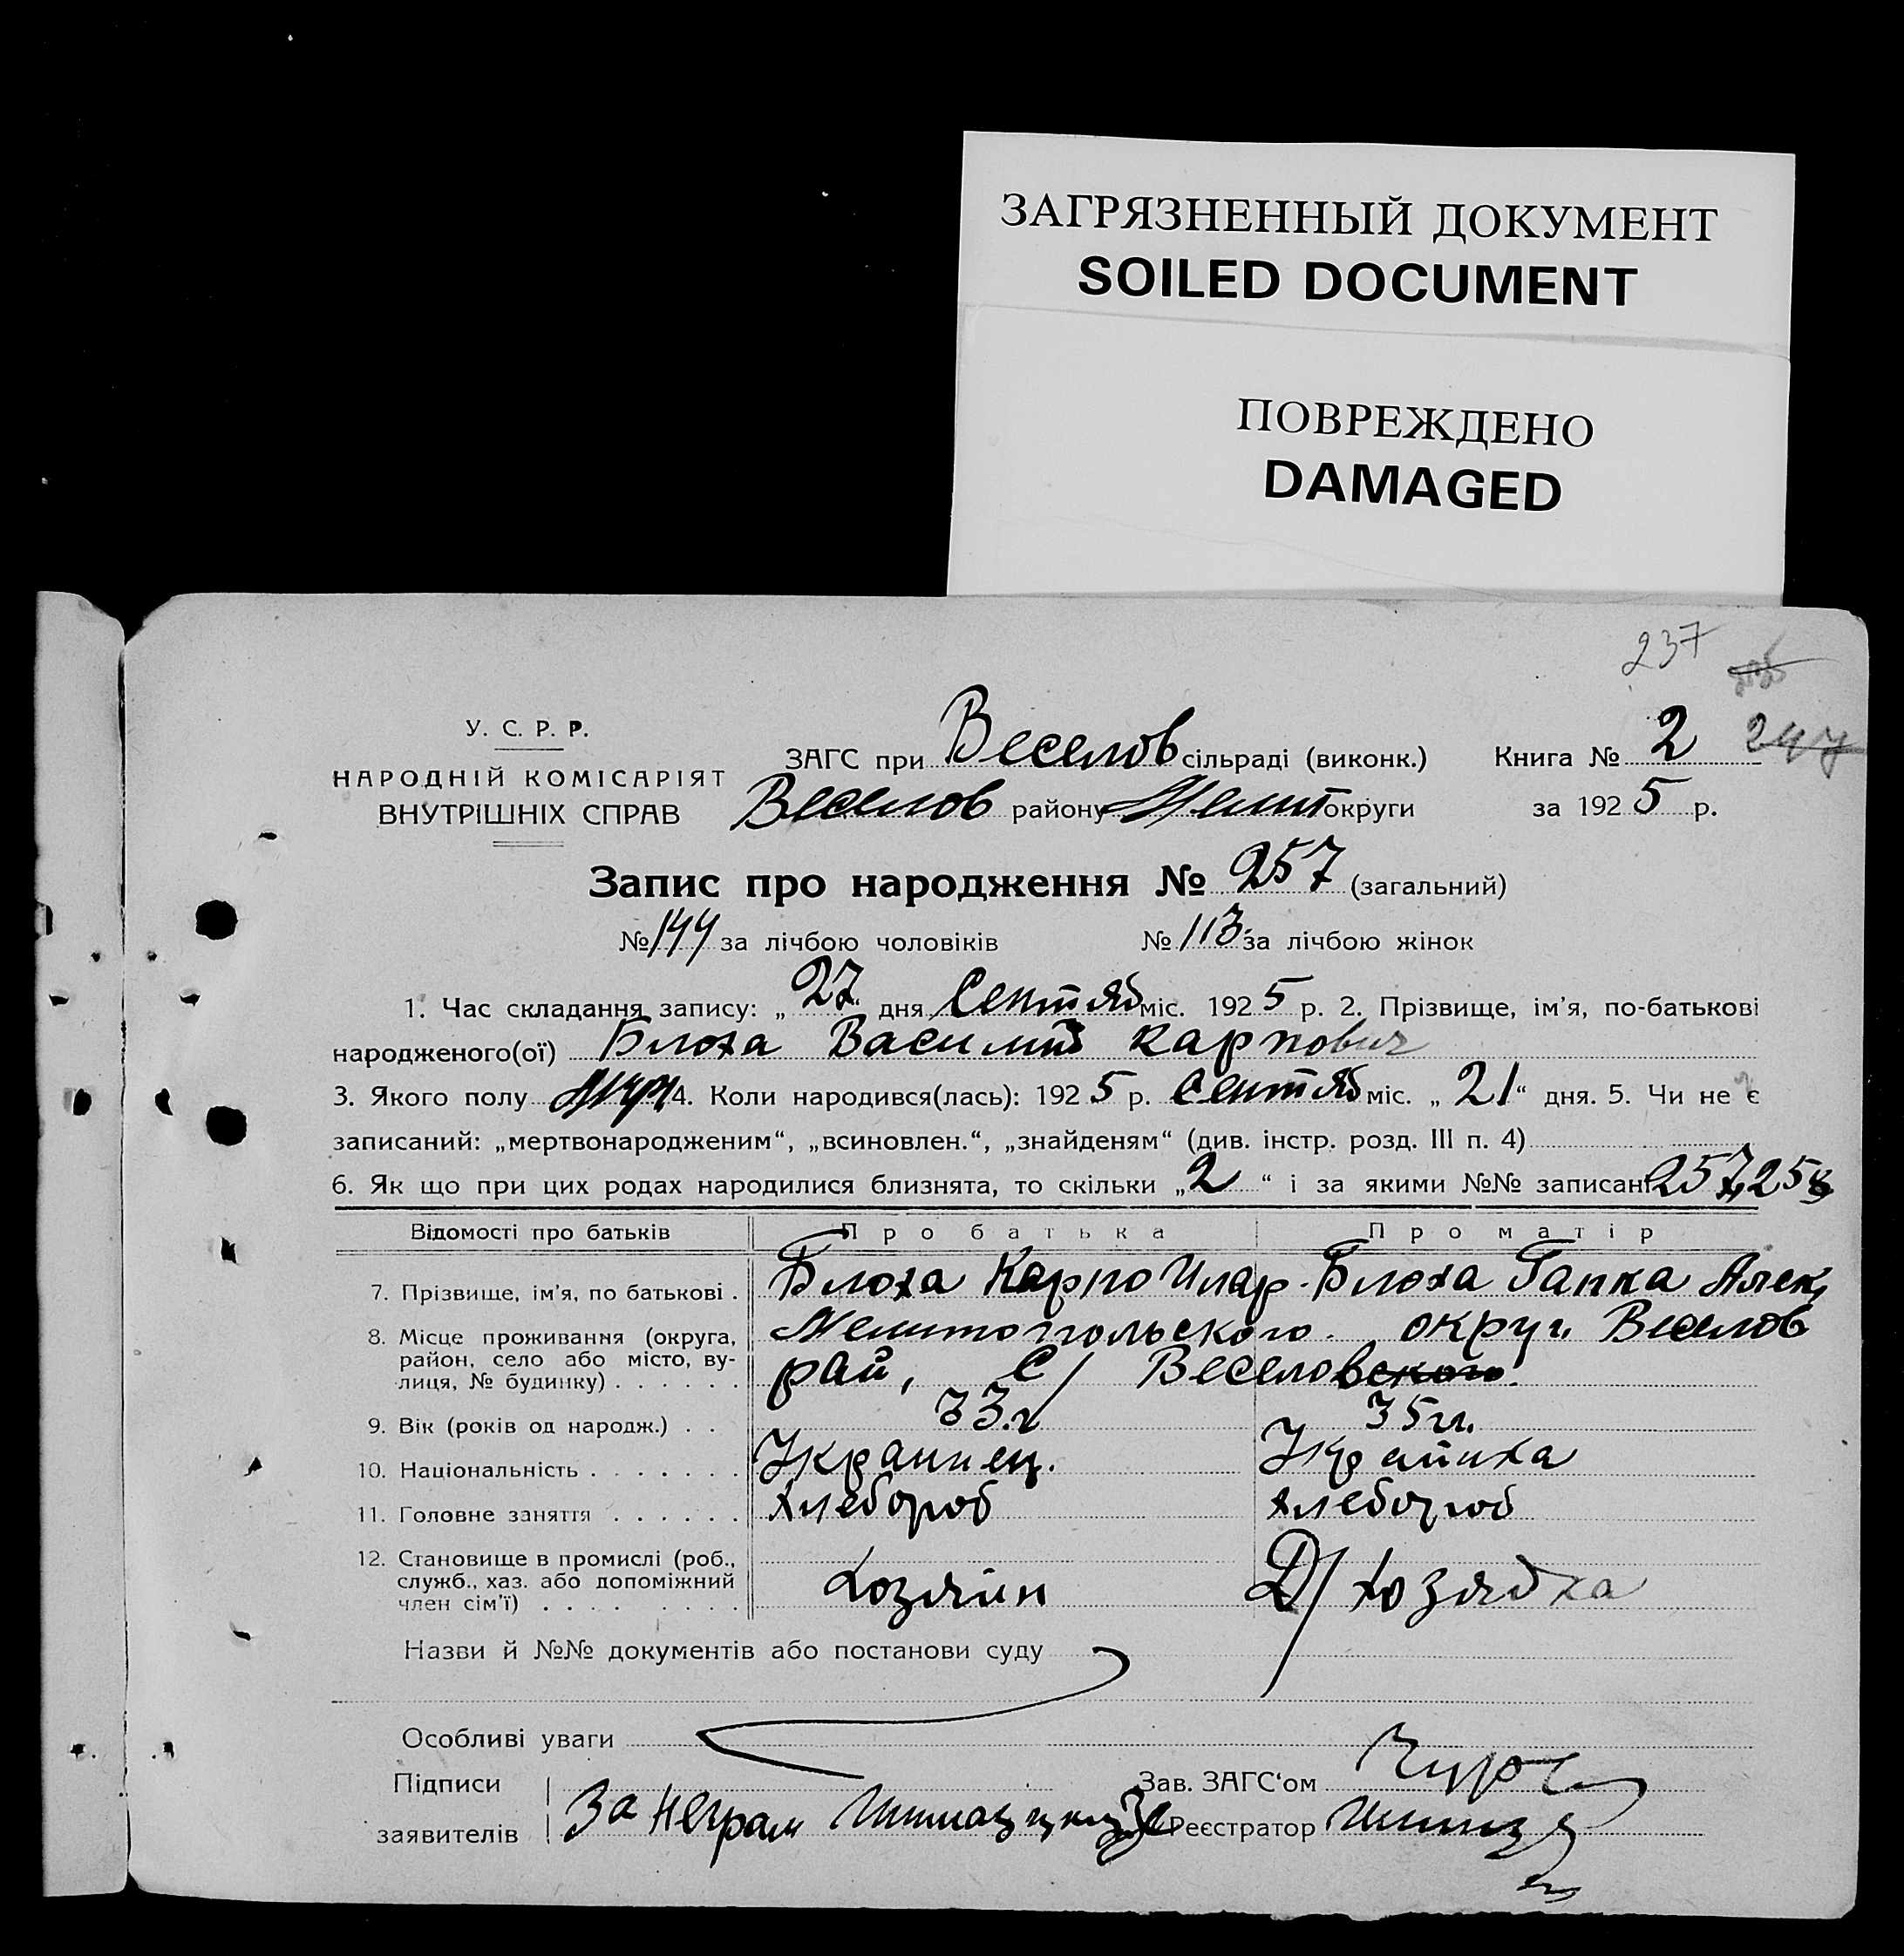 ЗАГРЯЗНЕННЫЙ ДОКУМЕНТ
SOILED DOCUMENT
ПОВРЕЖДЕНО
DAMAGED
237
247
У. С. Р. Р.
НАРОДНІЙ КОМІСАРІЯТ
ВНУТРІШНІХ СПРАВ
ЗАГС при Веселов сільраді (виконк.) Книга № 2
Веселов району Мелит округи за 1925 р.
Запис про народження № 257 (загальний)
№ 144 за лічбою чоловіків № 113 за лічбою жінок
1. Час складання запису: „27“ дня Сентяб міс. 1925 р. 2. Прізвище, ім'я, по-батькові
народженого(ої) Блоха Василий Карпович
3. Якого полу муж 4. Коли народився(лась): 1925 р. Сентяб міс. „21“ дня. 5. Чи не є
записаний: „мертвонародженим“, „всиновлен.“, „знайденям“ (див. інстр. розд. III п. 4)
6. Як що при цих родах народилися близнята, то скільки „2“ і за якими №№ записані 257, 258
Відомості про батьків Про батька Про матір
7. Прізвище, ім'я, по батькові . Блоха Карпо Илар. Блоха Гапка Алек,
8. Місце проживання (округа, район, село або місто, вулиця, № будинку) . . . . . . Мелитопольского округи Веселов
рай, с/ Веселовского
9. Вік (років од народж.) . . 33.г 35 гл.
10. Національність . . . . . . . Украинец. Украинка
11. Головне заняття . . . . . . хлебороб хлебороб
12. Становище в промислі (роб., служб., хаз. або допоміжний член сім'ї) . . . . . . . . Хозяин Д/хозяйка
Назви й №№ документів або постанови суду
Особливі уваги
Підписи
заявителів
За неграм
Зав. ЗАГС'ом
Реєстратор